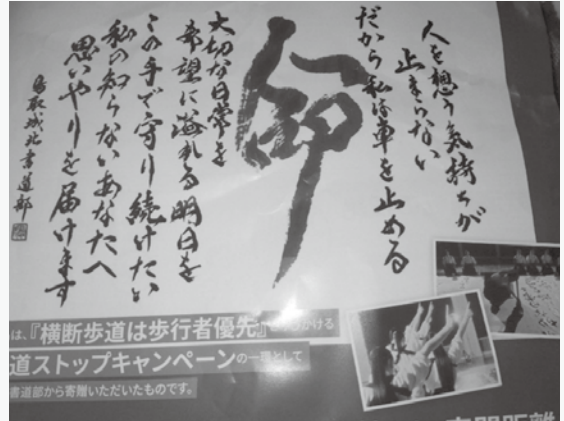 人を想う気持ちが
止まらない
だから私は車を止める
命
大切な日常を
希望に溢れる明日を
この手で守り続けたい
私の知らないあなたへ
思いやりを届けます
鳥取城北書道部
は、『横断歩道は歩行者優先』
かける
道ストップキャンペーンの一環として
書道部から寄贈いただいたものです。
車間距離